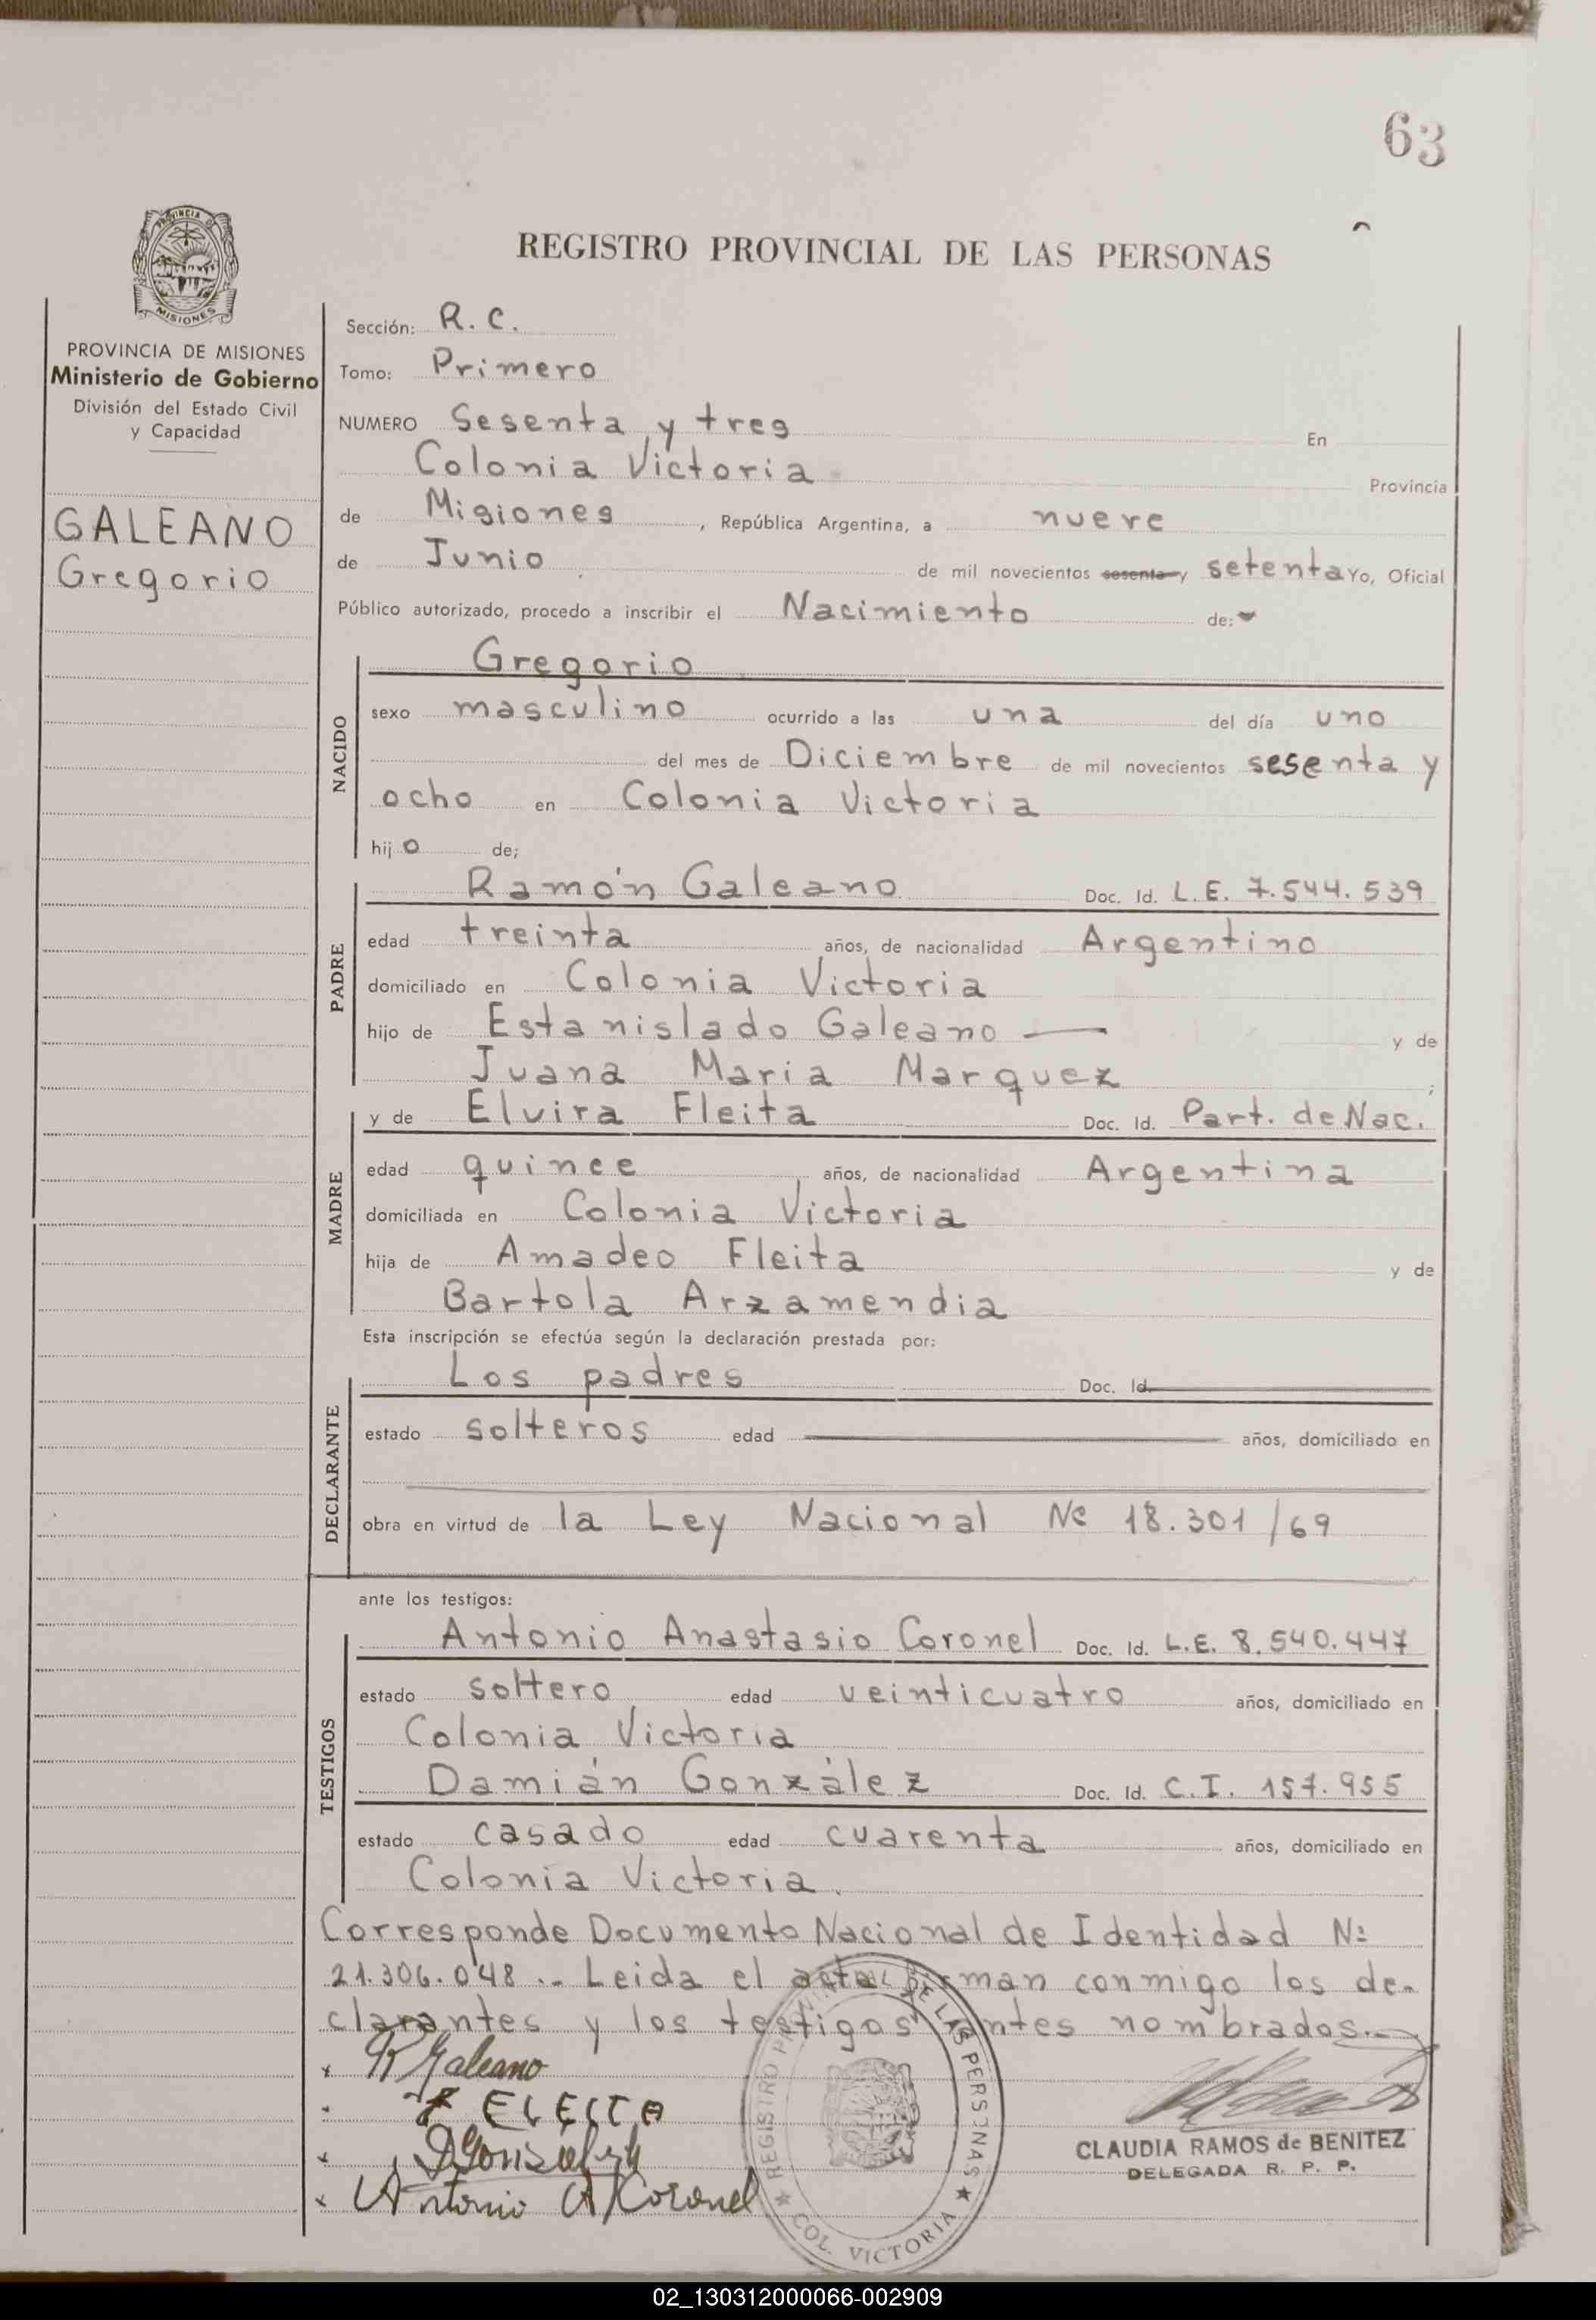 63
PROVINCIA DE
MISIONES
REGISTRO PROVINCIAL DE LAS PERSONAS
PROVINCIA DE MISIONES
Ministerio de Gobierno
División del Estado Civil
y Capacidad
GALEANO
Gregorio
Sección: R. C.
Tomo: Primero
NUMERO Sesenta y tres En
Colonia Victoria Provincia
de Misiones, República Argentina, a nueve
de Junio de mil novecientos sesenta y setenta Yo, Oficial
Público autorizado, procedo a inscribir el Nacimiento de:
NACIDO
Gregorio
sexo masculino ocurrido a las una del día uno
del mes de Diciembre de mil novecientos sesenta y
ocho en Colonia Victoria
hijo de;
PADRE
Ramón Galeano Doc. Id. L.E. 7.544.539
edad treinta años, de nacionalidad Argentino
domiciliado en Colonia Victoria
hijo de Estanislado Galeano — y de
Juana Maria Marquez ;
MADRE
y de Elvira Fleita Doc. Id. Part. de Nac.
edad quince años, de nacionalidad Argentina
domiciliada en Colonia Victoria
hija de Amadeo Fleita y de
Bartola Arzamendia
Esta inscripción se efectúa según la declaración prestada por:
DECLARANTE
Los padres Doc. Id.
estado solteros edad años, domiciliado en
obra en virtud de la Ley Nacional Nº 18.301/69
ante los testigos:
TESTIGOS
Antonio Anastasio Coronel Doc. Id. L.E. 8.540.447
estado soltero edad veinticuatro años, domiciliado en
Colonia Victoria
Damián González Doc. Id. C.I. 157.955
estado casado edad cuarenta años, domiciliado en
Colonia Victoria.
Corresponde Documento Nacional de Identidad Nº
21.306.048.- Leida el acta firman conmigo los de-
clarantes y los testigos antes nombrados.-
x R Galeano
ELEITA
x DGonzalez
x Antonio A Coronel
REGISTRO PROVINCIAL DE LAS PERSONAS
COL. VICTORIA
CLAUDIA RAMOS de BENITEZ
DELEGADA R. P. P.
02_130312000066-002909